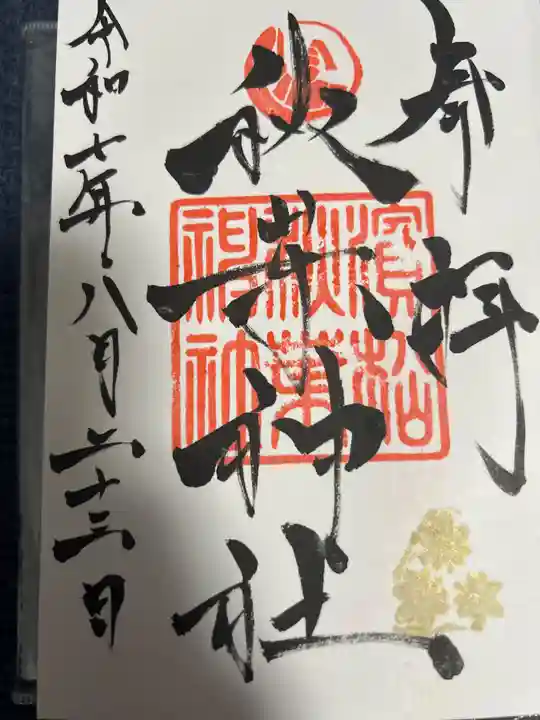 奉拝
秋葉神社
濱松
秋葉
神社
令和七年八月二十三日